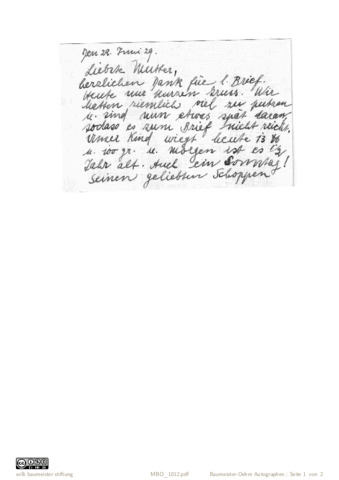 Den 22. Juni 29.
Liebste Mutter,
herzlichen Dank für l. Brief.
Heute nur kurzen Gruss. Wir
hatten ziemlich viel zu putzen
u. sind nun etwas spät daran,
sodass es zum Brief nicht reicht.
Unser Kind wiegt heute 13
u. 100 gr. u. morgen ist es 1½
Jahr alt. Auch ein Sonntag!
Seinen geliebten Schoppen
willi baumeister stiftung
MBO_1812.pdf
Baumeister-Oehm Autographen : Seite 1 von 2